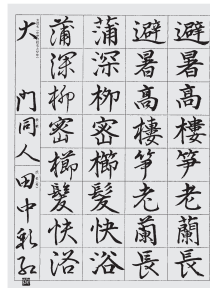 避暑高棲笋老蘭長
避暑高棲笋老蘭長
蒲深柳密櫛髮快浴
蒲深柳密櫛髮快浴
大門同人田中彩紅